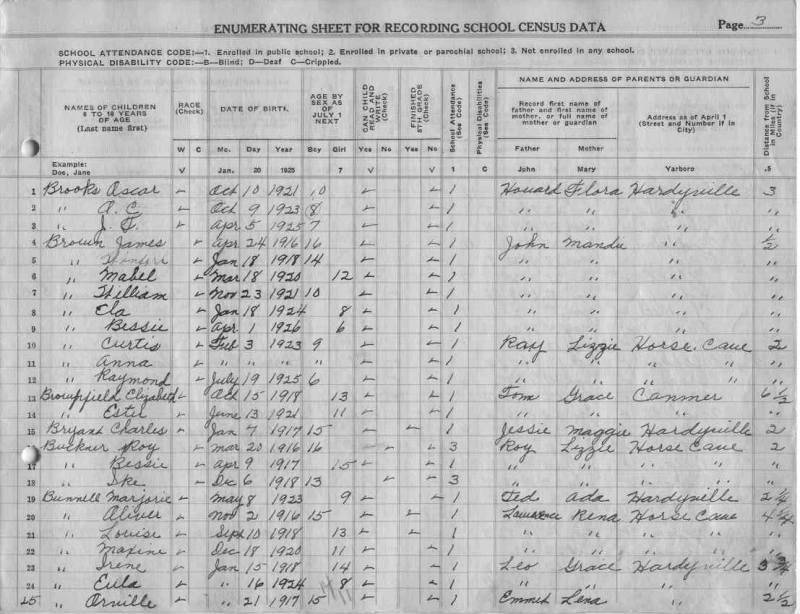 ENUMERATING SHEET FOR RECORDING SCHOOL CENSUS DATA Page 3
SCHOOL ATTENDANCE CODE:—1. Enrolled in public school; 2. Enrolled in private or parochial school; 3. Not enrolled in any school.
PHYSICAL DISABILITY CODE:—B—Blind; D—Deaf C—Crippled.
NAMES OF CHILDREN 6 TO 18 YEARS OF AGE (Last name first) RACE (Check) DATE OF BIRTH. AGE BY SEX AS OF JULY 1 NEXT CAN CHILD READ AND WRITE (Check) FINISHED 8TH GRADE (Check) School Attendance (See Code) Physical Disabilities (See Code) NAME AND ADDRESS OF PARENTS OR GUARDIAN Distance from School in Miles (if in Country)
Record first name of father and first name of mother, or full name of mother or guardian Address as of April 1 (Street and Number if in City)
W C Mo. Day Year Boy Girl Yes No Yes No Father Mother
Example: Doe, Jane V Jan. 20 1925 7 V V 1 C John Mary Yarboro .5
1 Brooks Oscar ✓ Oct 10 1921 10 ✓ ✓ 1 Howard Flora Hardyville 3
2 " A. C ✓ Oct 9 1923 8 ✓ ✓ 1 " " " "
3 " J. T. ✓ Apr 5 1925 7 ✓ ✓ 1 " " " "
4 Brown James ✓ Apr 24 1916 16 ✓ ✓ 1 John Mandu " 1/2
5 " ✓ Jan 18 1918 14 ✓ ✓ 1 " " " "
6 " Mabel ✓ Mar 18 1920 12 ✓ ✓ 1 " " " "
7 " William ✓ Nov 23 1921 10 ✓ ✓ 1 " " " "
8 " Ela ✓ Jan 18 1924 8 ✓ ✓ 1 " " " "
9 " Bessie ✓ Apr 1 1926 6 ✓ ✓ 1 " " " "
10 " Curtis ✓ Feb 3 1923 9 ✓ ✓ 1 Ray Lizzie Horse Cave 2
11 " Anna ✓ " " " ✓ ✓ 1 " " " "
12 " Raymond ✓ July 19 1925 6 ✓ ✓ 1 " " " "
13 Brownfield Elizabeth ✓ Oct 15 1918 13 ✓ ✓ 1 Tom Grace Canmer 6 1/2
14 " Estel ✓ June 13 1921 11 ✓ ✓ 1 " " " "
15 Bryant Charles ✓ Jan 7 1917 15 ✓ ✓ 1 Jessie Maggie Hardyville 2
Buckner Roy ✓ Mar 20 1916 16 ✓ ✓ 3 Roy Lizzie Horse Cave 2
17 " Bessie ✓ Apr 9 1917 15 ✓ ✓ 1 " " " "
18 " Ike ✓ Dec 6 1918 13 ✓ ✓ 3 " " " "
19 Bunnell Marjorie ✓ May 8 1923 9 ✓ ✓ 1 Ted Ada Hardyville 2 1/4
20 " Aliver ✓ Nov 2 1916 15 ✓ ✓ 1 Lawrence Rena Horse Cave 4 1/4
21 " Louise ✓ Sept 10 1918 13 ✓ ✓ 1 " " " "
22 " Maxine ✓ Dec 18 1920 11 ✓ ✓ 1 " " " "
23 " Irene ✓ Jan 15 1918 14 ✓ ✓ 1 Leo Grace Hardyville 3 3/4
24 " Eula ✓ " 16 1924 8 ✓ ✓ 1 " " " "
25 " Orville ✓ " 21 1917 15 ✓ ✓ 1 Emmet Lena " 2 1/2